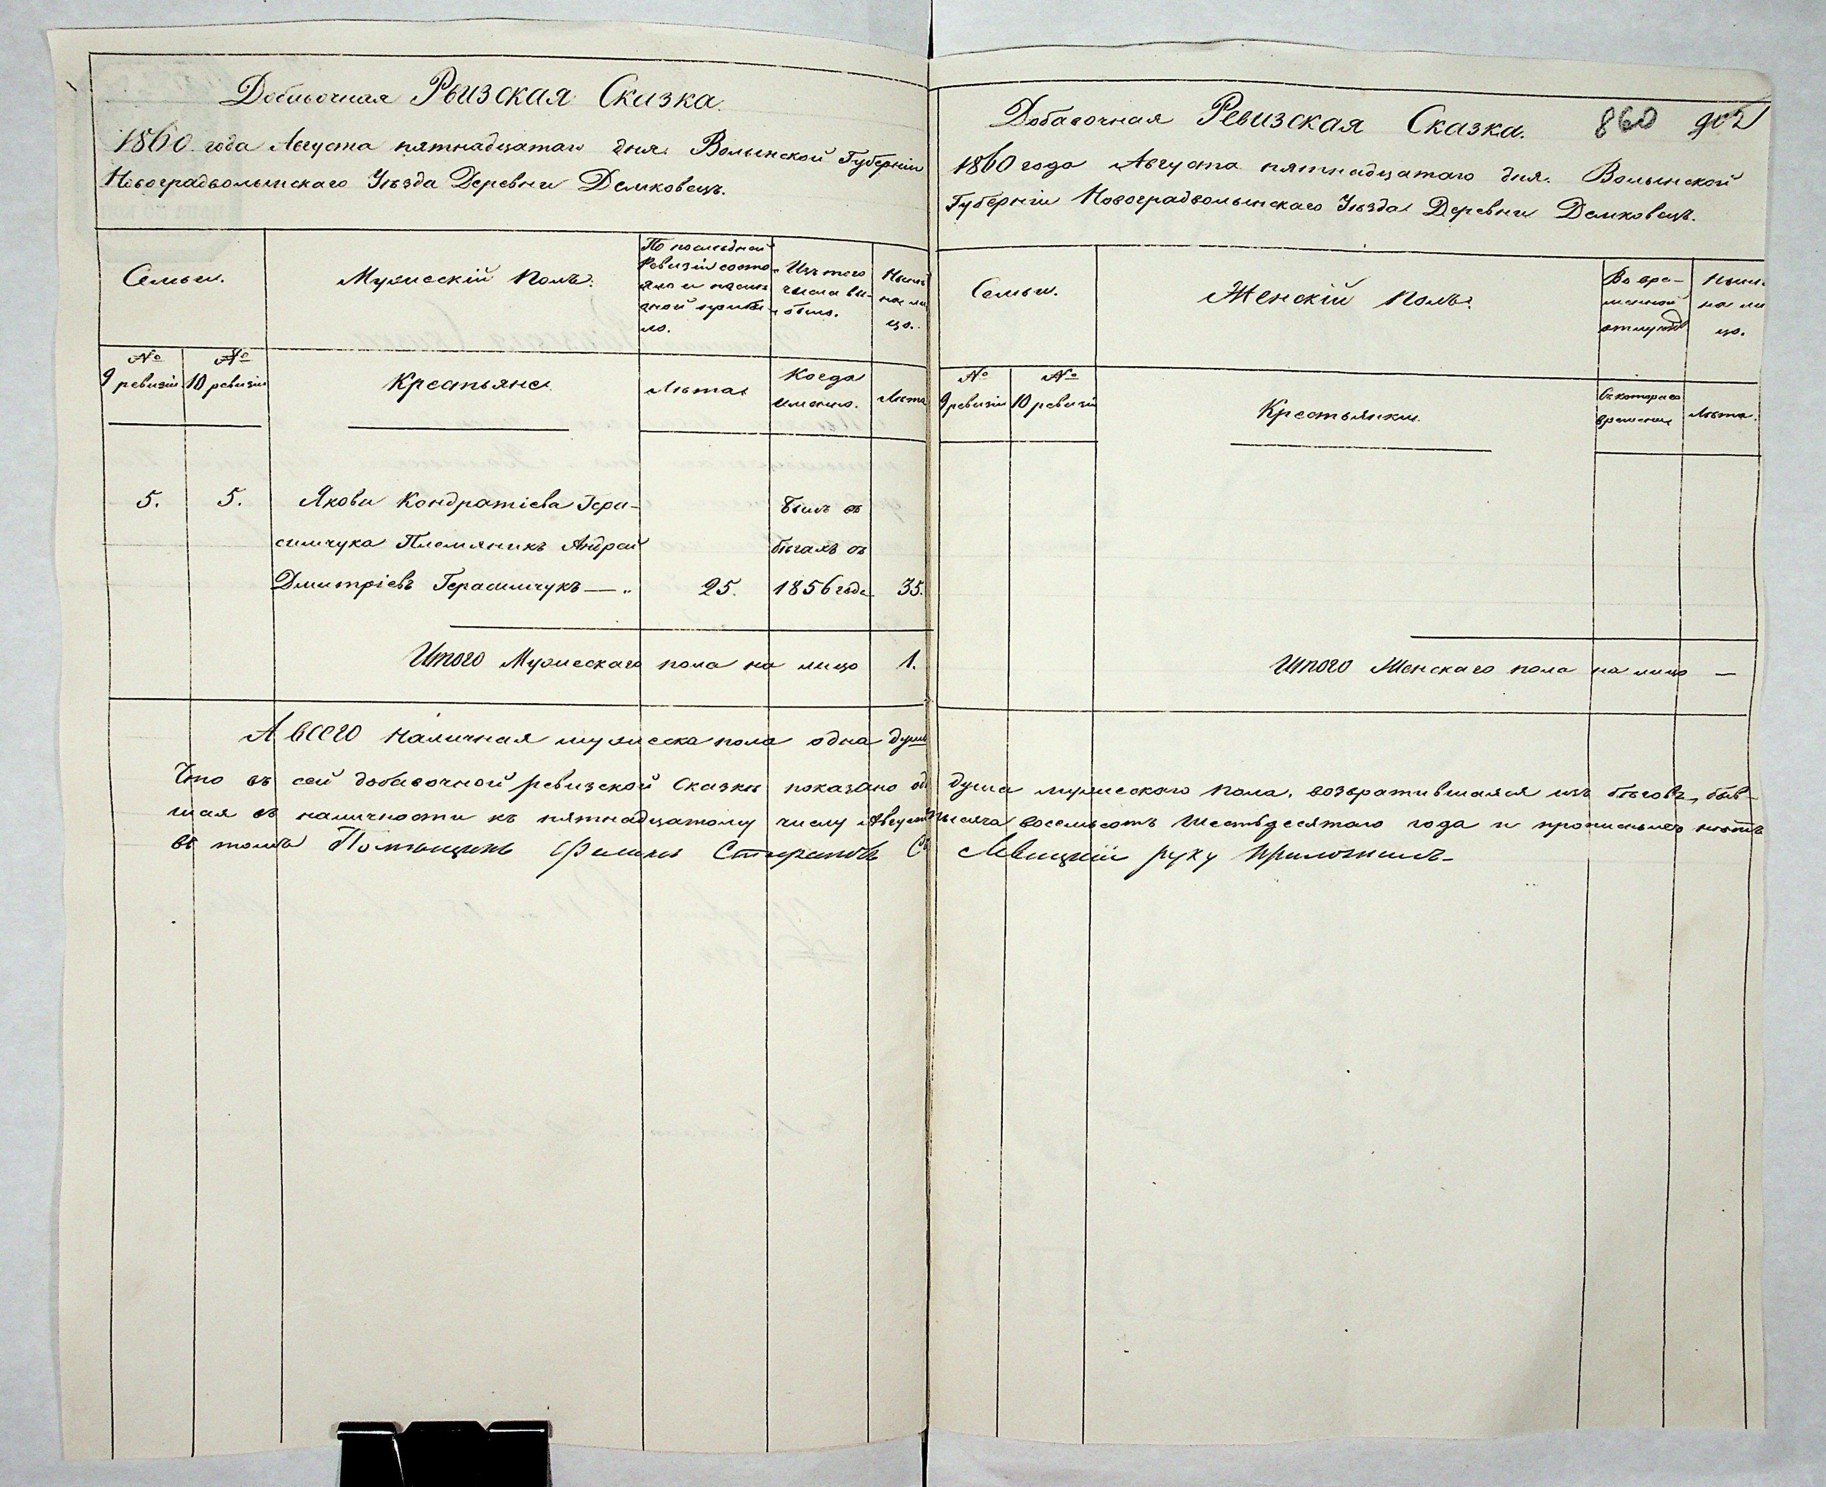 Добавочная Ревизская Сказка.
1860 года Августа пятнадцатаго дня. Волынской Губерніи
Новоградволынскаго Уѣзда Деревни Демковецъ.
Семьи.
Мужескій Полъ.
По последней
Ревизіи состо
яло и после
оной прибы
ло.
Изъ того
числа вы-
было.
Нынѣ
на ли
цо.
№
9 ревизіи
№
10 ревизіи
Крестьяне
Лѣта
Когда
именно.
Лѣта
5.
5.
Якова Кондратіева Гера-
симчука Племяникъ Андрей
Дмитріевъ Герасимчукъ — „
25.
Былъ въ
бѣгахъ съ
1856 года
35.
Итого Мужескаго пола на лицо 1.
А всего наличная мужеска пола одна душа
Добавочная Ревизская Сказка.
860
902
1860 года Августа пятнадцатаго дня. Волынской
Губерніи Новоградволынскаго Уѣзда Деревни Демковецъ.
Семьи.
Женскій Полъ.
Во вре-
менной
отлучкѣ
Нынѣ
на ли
цо.
№
9 ревизіи
№
10 ревизіи
Крестьянки.
Съ котораго
времени
Лѣта.
Итого Женскаго пола на лицо —
Что въ сей добавочной ревизской Сказки показано душа мужескаго пола, возвратившаяся изъ бѣговъ, быв-
шая въ наличности къ пятнадцатому числу Августа тысяча восемьсотъ Шестьдесятаго года и прописныхъ нѣтъ
въ томъ Помѣщикъ Левицкій руку приложилъ